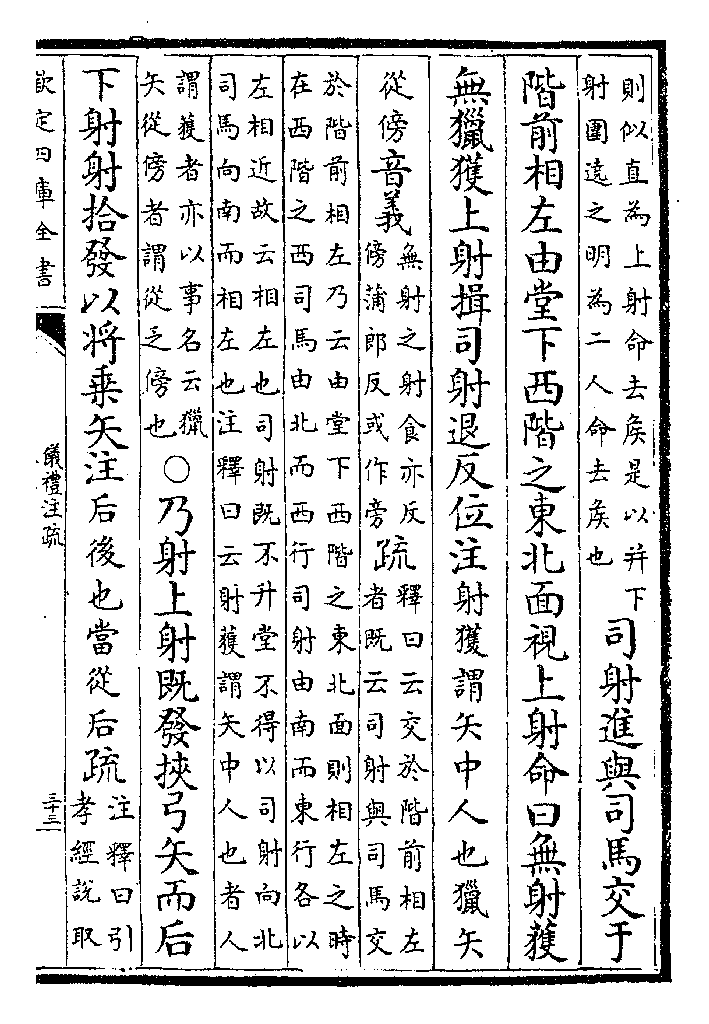 則似直為上射命去矦是以并下
射圍遠之明為二人命去矦也
司射進與司馬交于
階前相左由堂下西階之東北面視上射命曰無射獲
無獵獲上射揖司射退反位注射獲謂矢中人也獵矢
從傍音義
無射之射食亦反
傍蒲郎反或作旁
疏
釋曰云交於階前相左
者既云司射與司馬交
於階前相左乃云由堂下西階之東北面則相左之時
在西階之西司馬由北而西行司射由南而東行各以
左相近故云相左也司射既不升堂不得以司射向北
司馬向南而相左也注釋曰云射獲謂矢中人也者人
謂獲者亦以事名云獵
矢從傍者謂從乏傍也
○乃射上射既發挾弓矢而后
下射射拾發以將乗矢注后後也當從后疏
注釋曰引
孝經說取
欽定四庫全書
儀禮注疏
三十三